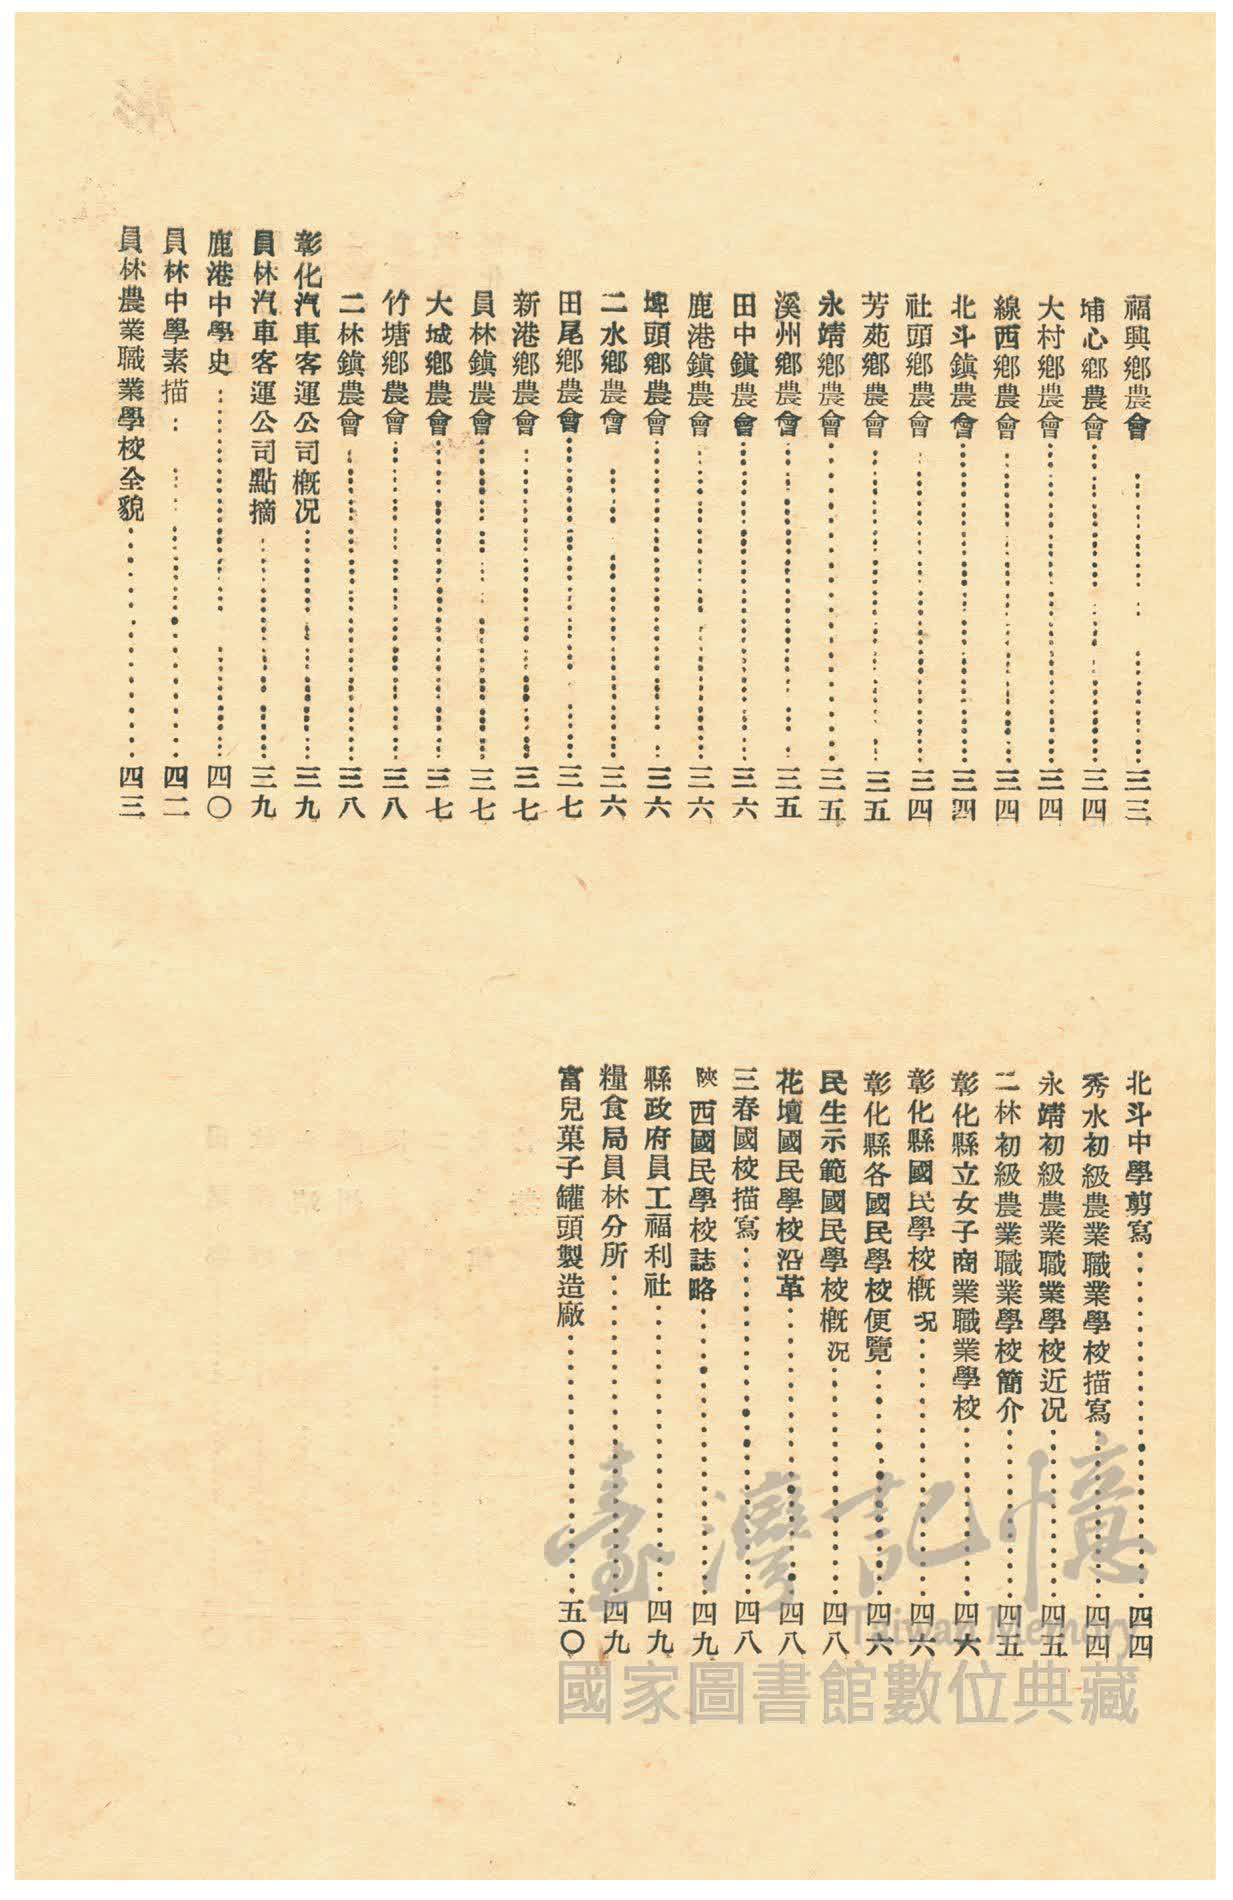 福興鄉農會………三三
埔心鄉農會………三四
大村鄉農會………三四
線西鄉農會………三四
北斗鎮農會………三四
社頭鄉農會………三四
芳苑鄉農會………三五
永靖鄉農會………三五
溪州鄉農會………三五
田中鎮農會………三六
鹿港鎮農會………三六
埤頭鄉農會………三六
二水鄉農會………三六
田尾鄉農會………三七
新港鄉農會………三七
員林鎮農會………三七
大城鄉農會………三七
竹塘鄉農會………三八
二林鎮農會………三八
彰化汽車客運公司概况………三九
員林汽車客運公司點摘………三九
鹿港中學史………四〇
員林中學素描………四二
員林農業職業學校全貌………四三
北斗中學剪寫………四四
秀水初級農業職業學校描寫………四四
永靖初級農業職業學校近况………四五
二林初級農業職業學校簡介………四五
彰化縣立女子商業職業學校………四六
彰化縣國民學校概况………四六
彰化縣各國民學校便覽………四六
民生示範國民學校概況………四八
花壇國民學校沿革………四八
三春國校描寫………四八
陝西國民學校誌略………四九
縣政府員工福利社………四九
糧食局員林分所………四九
富兒菓子罐頭製造廠………五〇
臺灣記憶
Taiwan Memory
國家圖書館數位典藏